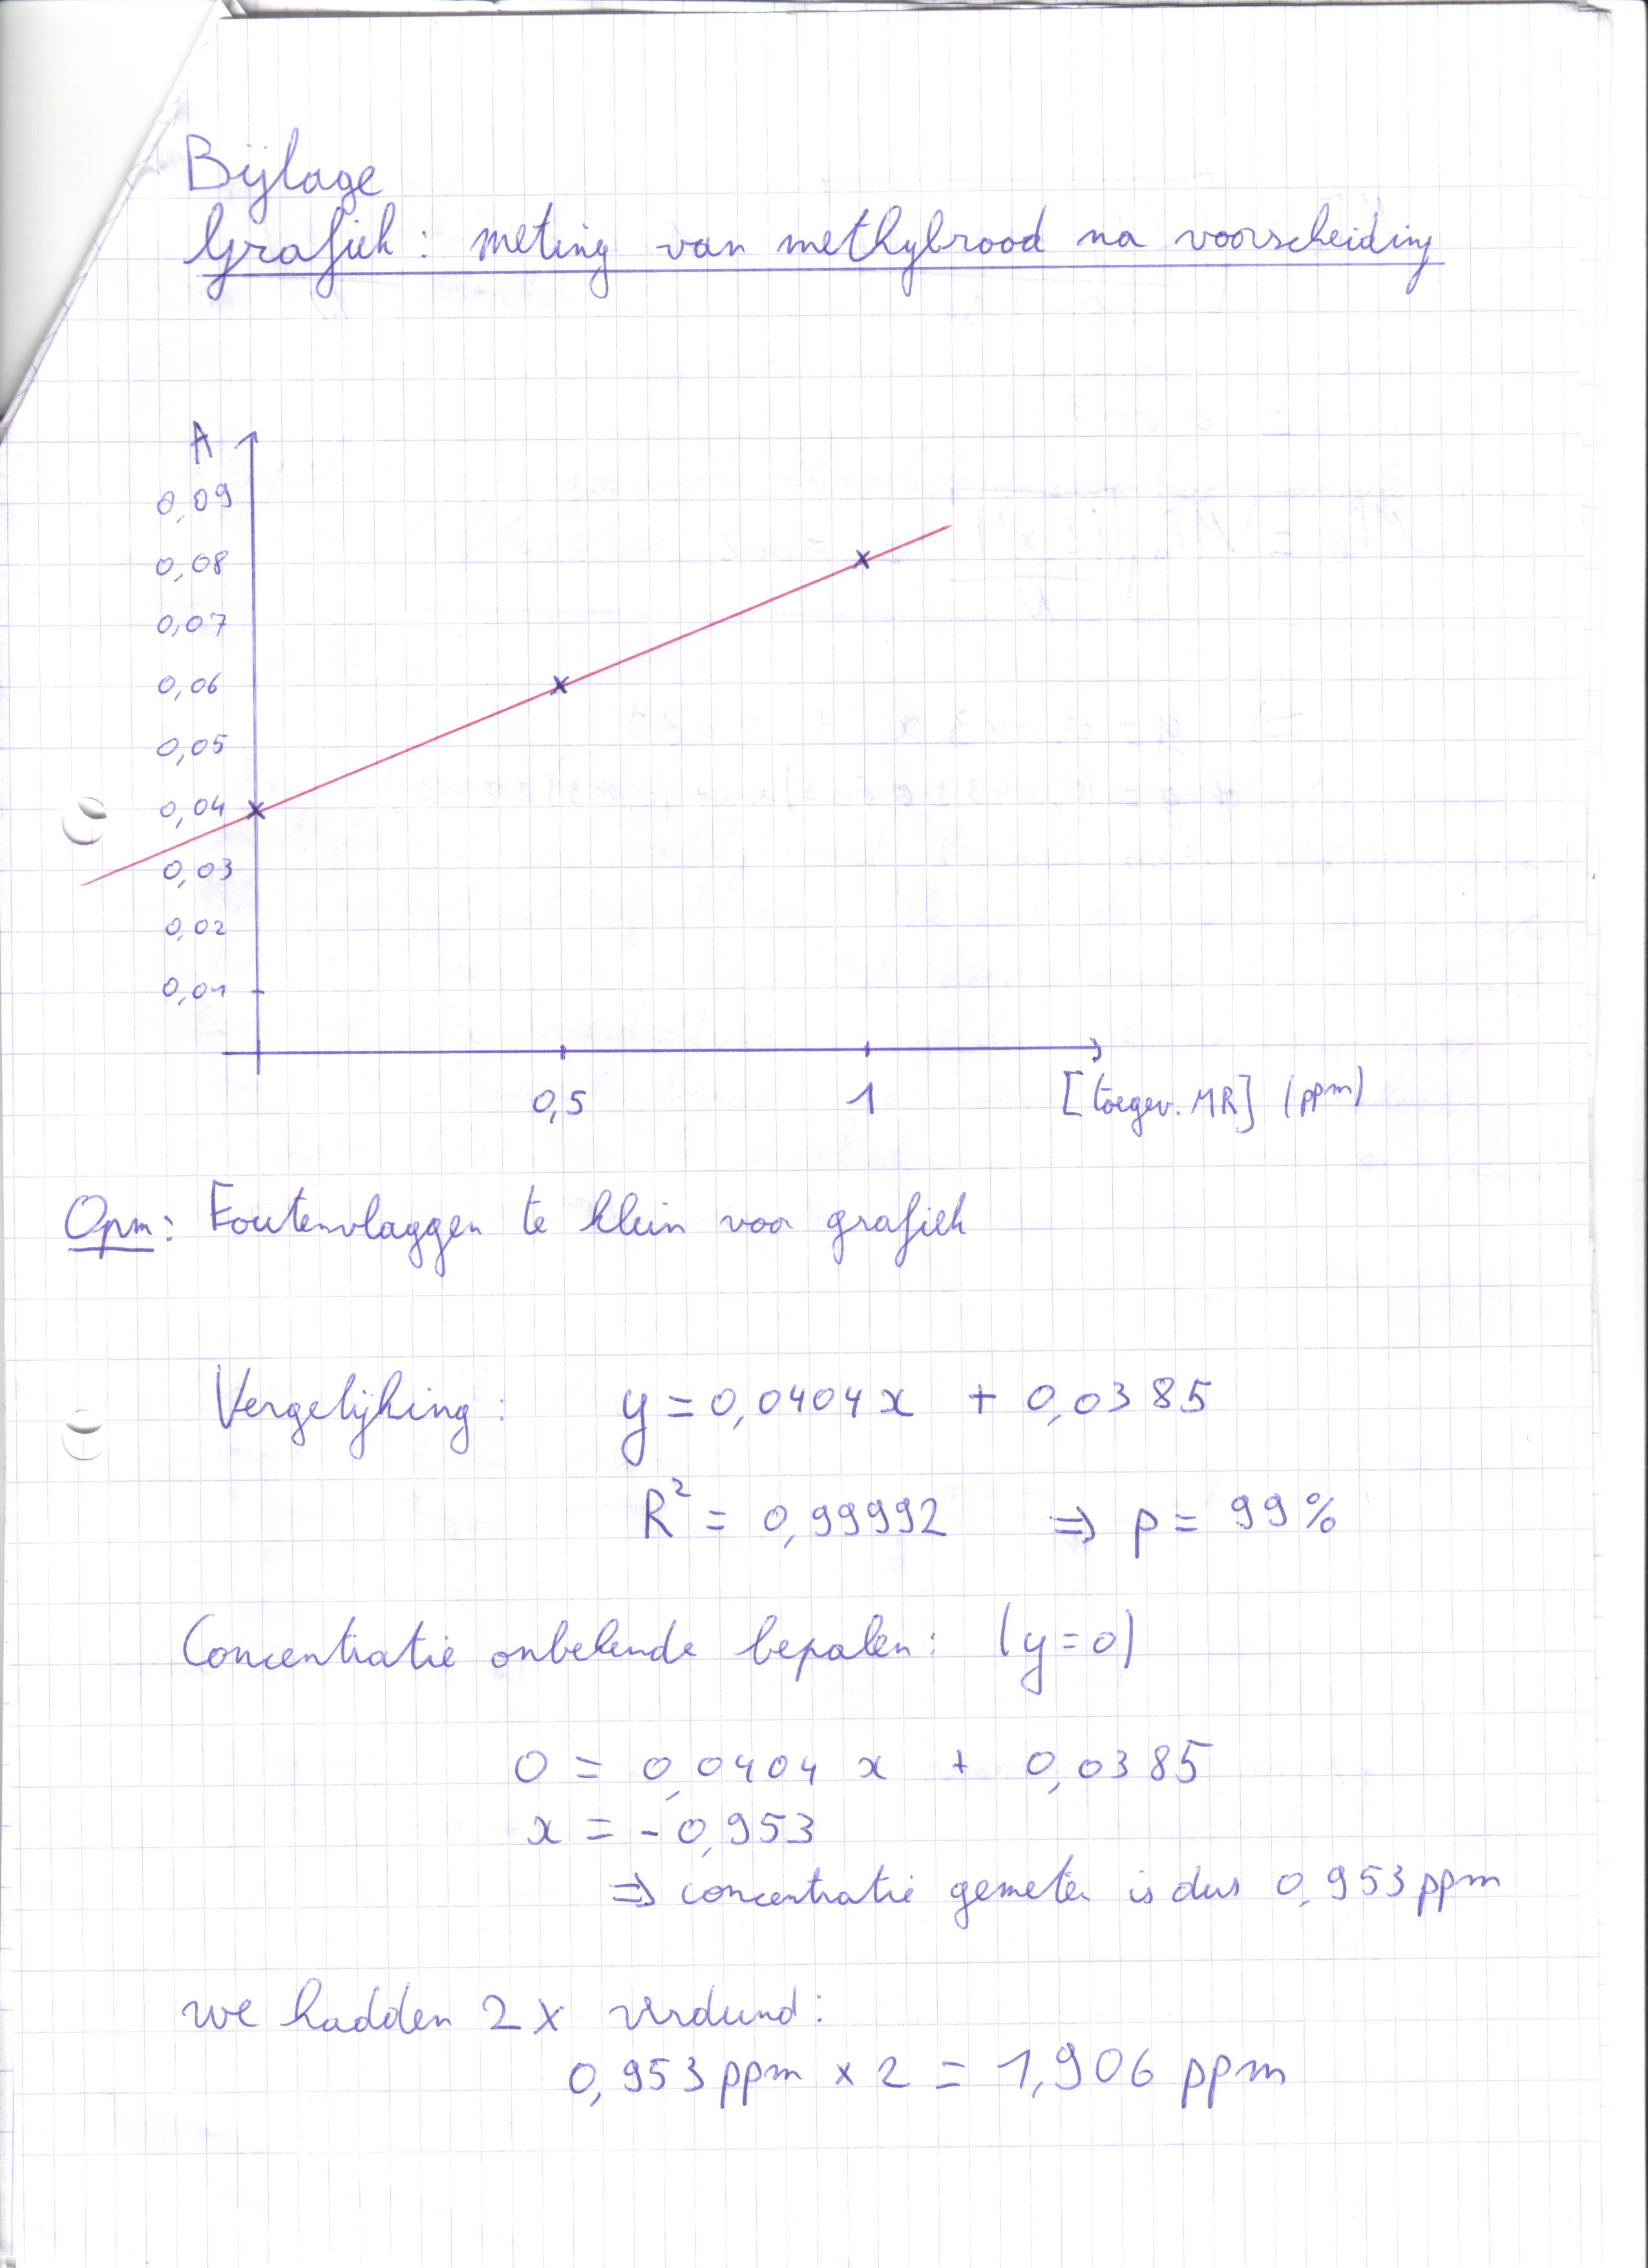 Bijlage
Grafiek: meting van methylrood na voorscheiding
A
0,09
0,08
0,07
0,06
0,05
0,04
0,03
0,02
0,01
0,5 1 [toegev. MR] (ppm)
Opm: Foutenvlaggen te klein voor grafiek
Vergelijking: y = 0,0404 x + 0,0385
R² = 0,99992 ⇒ p = 99%
Concentratie onbekende bepalen: (y=0)
0 = 0,0404 x + 0,0385
x = -0,953
⇒ concentratie gemeten is dus 0,953 ppm
we hadden 2 x verdund:
0,953 ppm x 2 = 1,906 ppm